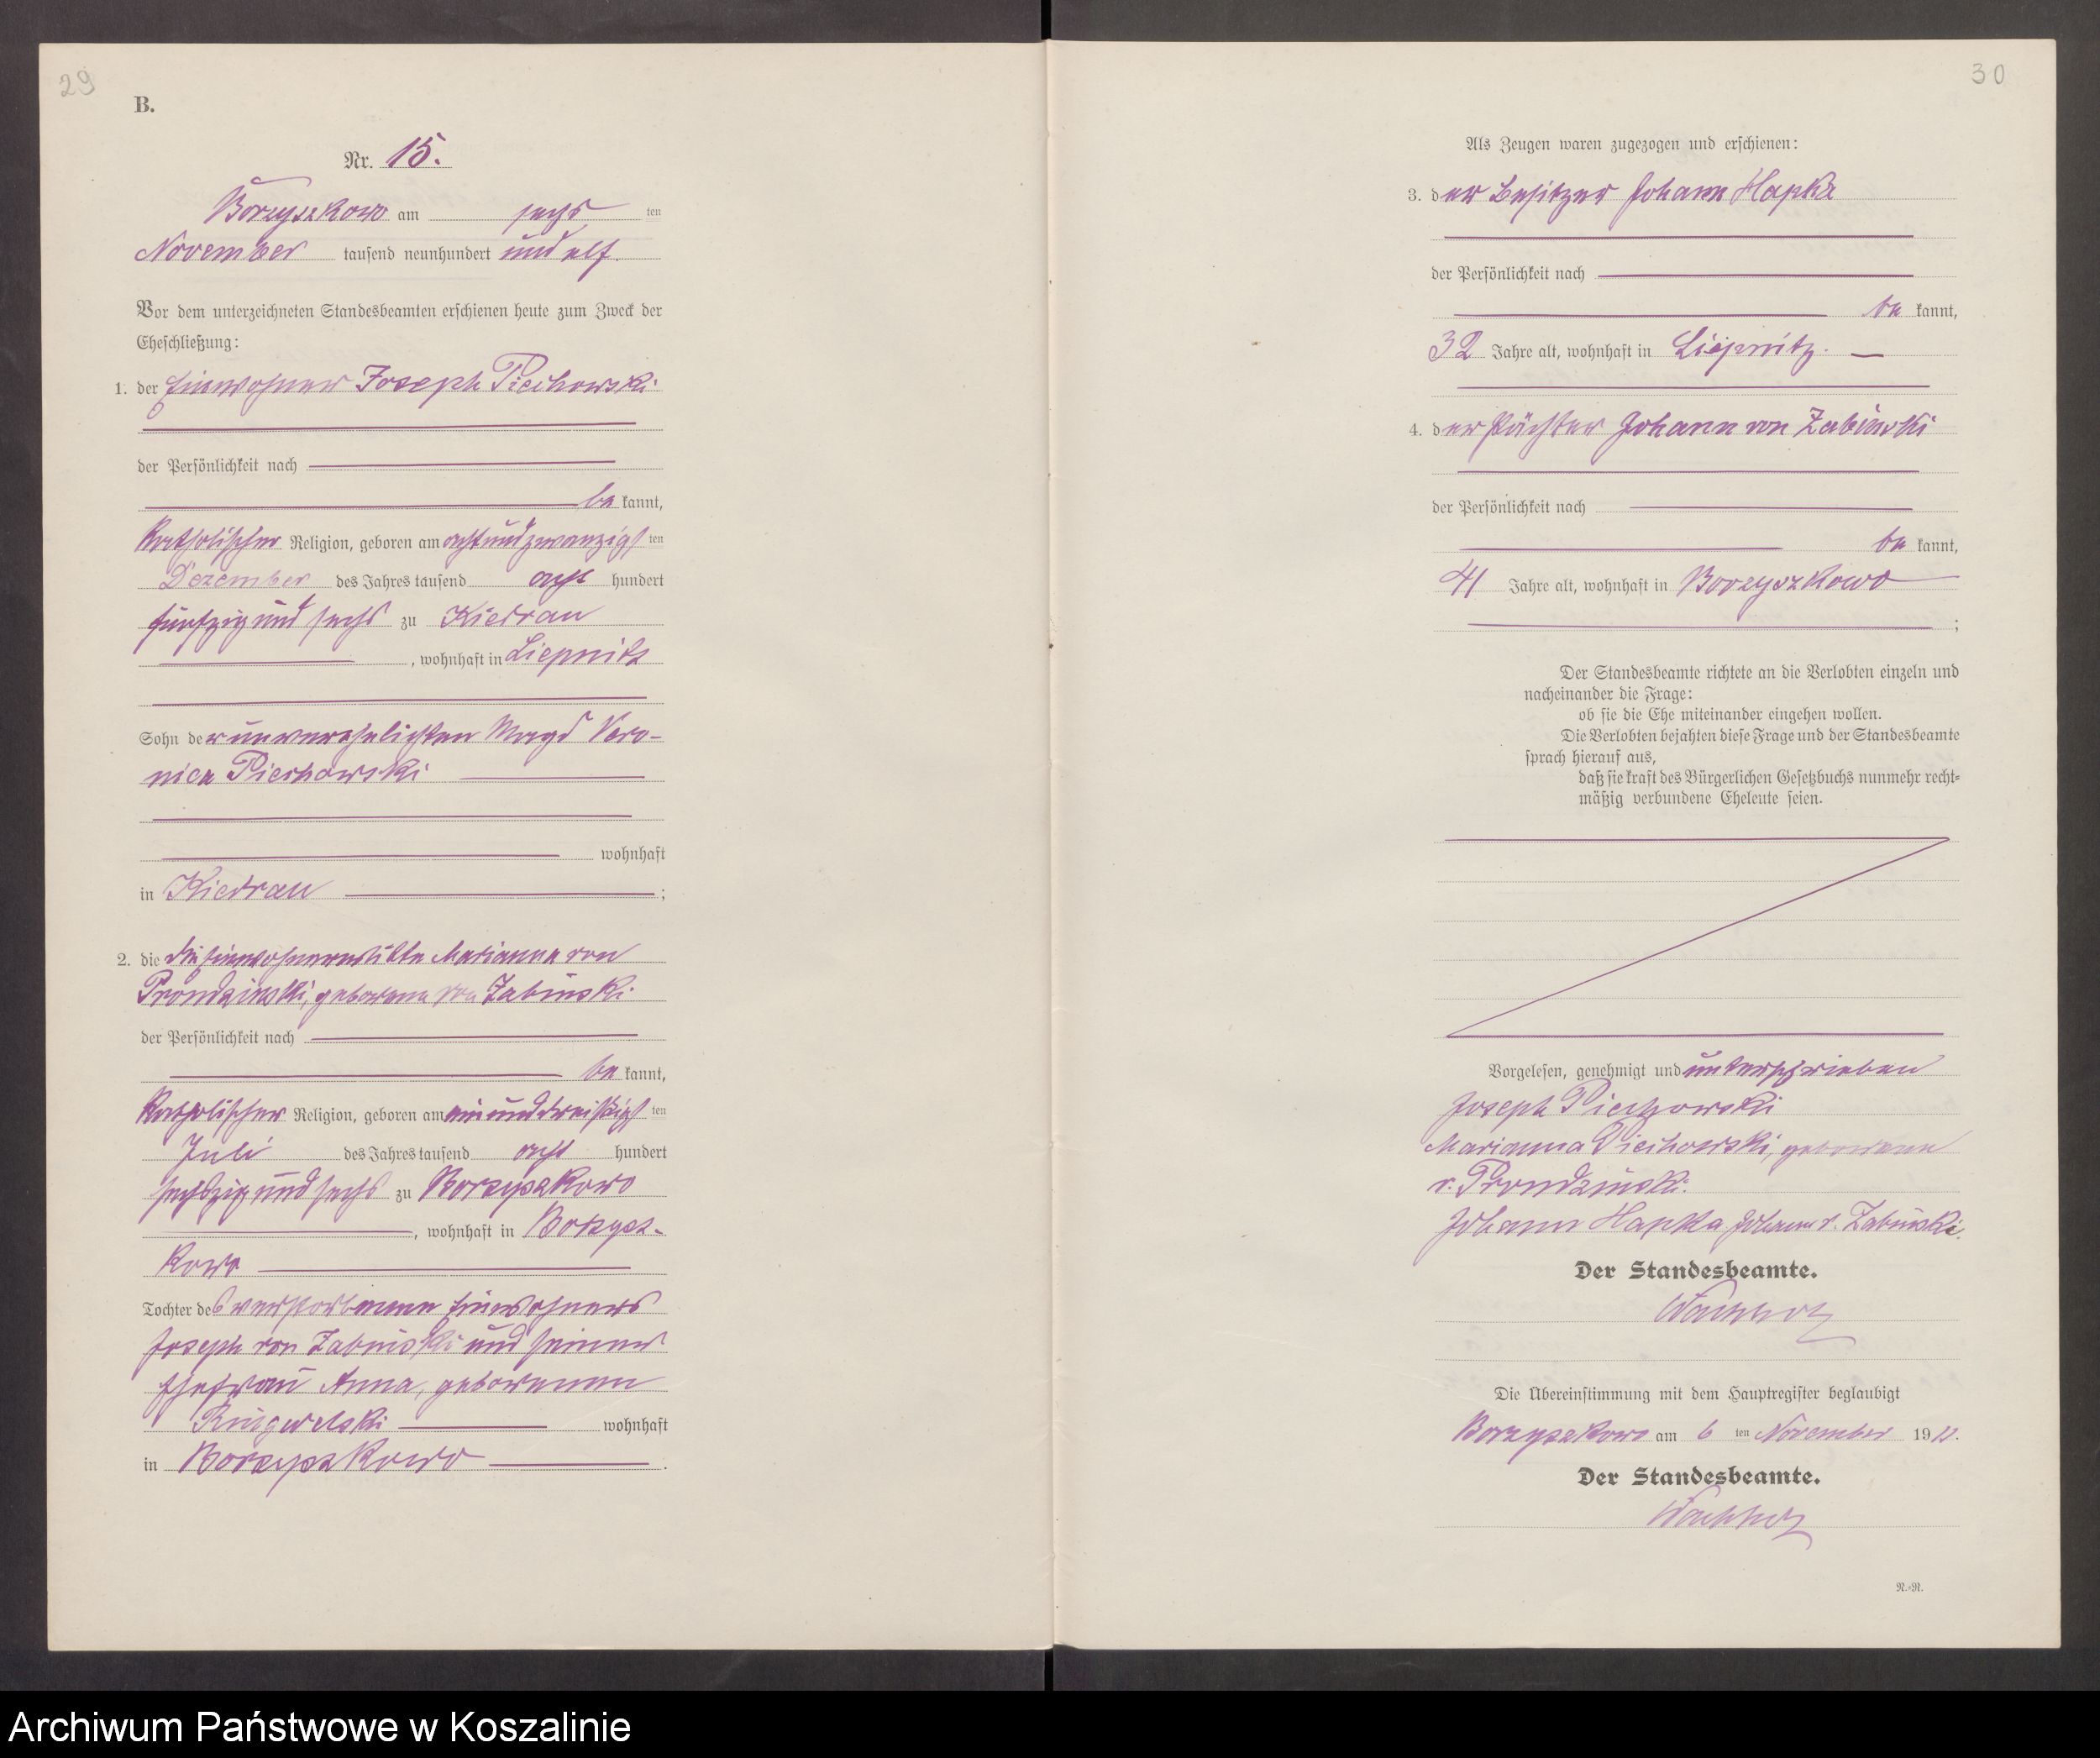 29
B.
Nr. 15.
Borzyszkowo am sechs ten
November tausend neunhundert und elf.
Vor dem unterzeichneten Standesbeamten erschienen heute zum Zweck der
Eheschließung:
1. der Einwohner Joseph Piechowski
der Persönlichkeit nach
be kannt,
katholischer Religion, geboren am achtundzwanzigs ten
Dezember des Jahres tausend acht hundert
fünfzig und sechs zu Kiedrau
, wohnhaft in Liepnitz
Sohn der unverehelichten Magd Vero-
nica Piechowski
wohnhaft
in Kiedrau ;
2. die die Einwohnerwitwe Marianna von
Prondzinski, geborene von Zabinski
der Persönlichkeit nach
be kannt,
katholischer Religion, geboren am einunddreißigs ten
Juli des Jahres tausend acht hundert
sechszig und sechs zu Borzyszkowo
, wohnhaft in Borzysz-
kowo
Tochter des verstorbenen Einwohners
Joseph von Zabinski und seiner
Ehefrau Anna, geborenen
wohnhaft
in Borzyszkowo .
30
Als Zeugen waren zugezogen und erschienen:
3. der Besitzer Johann Hapka
der Persönlichkeit nach
be kannt,
32 Jahre alt, wohnhaft in Liepnitz.
4. der Pächter Johann von Zabinski
der Persönlichkeit nach
be kannt,
41 Jahre alt, wohnhaft in Borzyszkowo
;
Der Standesbeamte richtete an die Verlobten einzeln und
nacheinander die Frage:
ob sie die Ehe miteinander eingehen wollen.
Die Verlobten bejahten diese Frage und der Standesbeamte
sprach hierauf aus,
daß sie kraft des Bürgerlichen Gesetzbuchs nunmehr recht-
mäßig verbundene Eheleute seien.
Vorgelesen, genehmigt und unterschrieben
Joseph Piechowski
Marianna Piechowski, geborene
v. Prondzinski.
Johann Hapka Johann v. Zabinski.
Der Standesbeamte.
Die Übereinstimmung mit dem Hauptregister beglaubigt
Borzyszkowo am 6 ten November 19 11.
Der Standesbeamte.
N.-N.
Archiwum Państwowe w Koszalinie